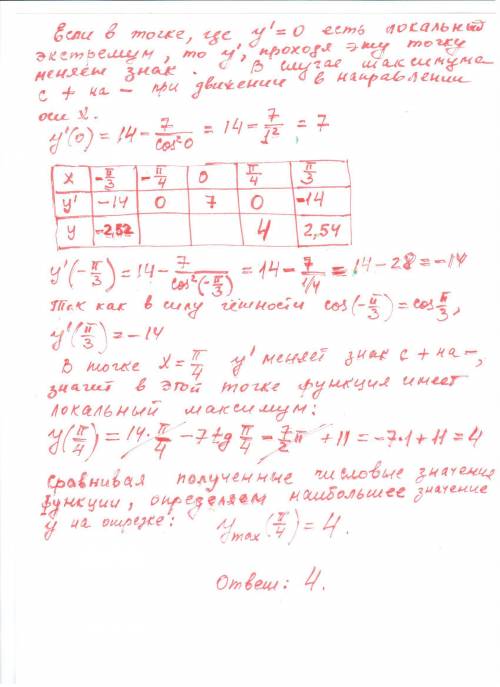 Если в точке, где y'=0 есть локальный
экстремум, то y', проходя эту точку
меняет знак. В случае максимума
с + на - при движении в направлении
оси x.
y'(0) = 14 - 7/cos²0 = 14 - 7/1² = 7
x | -π/3 | -π/4 | 0 | π/4 | π/3
y' | -14 | 0 | 7 | 0 | -14
y | -2,52 | | | 4 | 2,54
y'(-π/3) = 14 - 7/cos²(-π/3) = 14 - 7/1/4 = 14 - 28 = -14
Так как в силу чётности cos(-π/3) = cos π/3,
y'(π/3) = -14
В точке x = π/4 y' меняет знак с + на -,
значит в этой точке функция имеет
локальный максимум:
y(π/4) = 14·π/4 - 7tg π/4 - 7/2 π + 11 = -7·1 + 11 = 4
Сравнивая полученные числовые значение
функции, определяем наибольшее значение
y на отрезке: y max (π/4) = 4.
Ответ: 4.